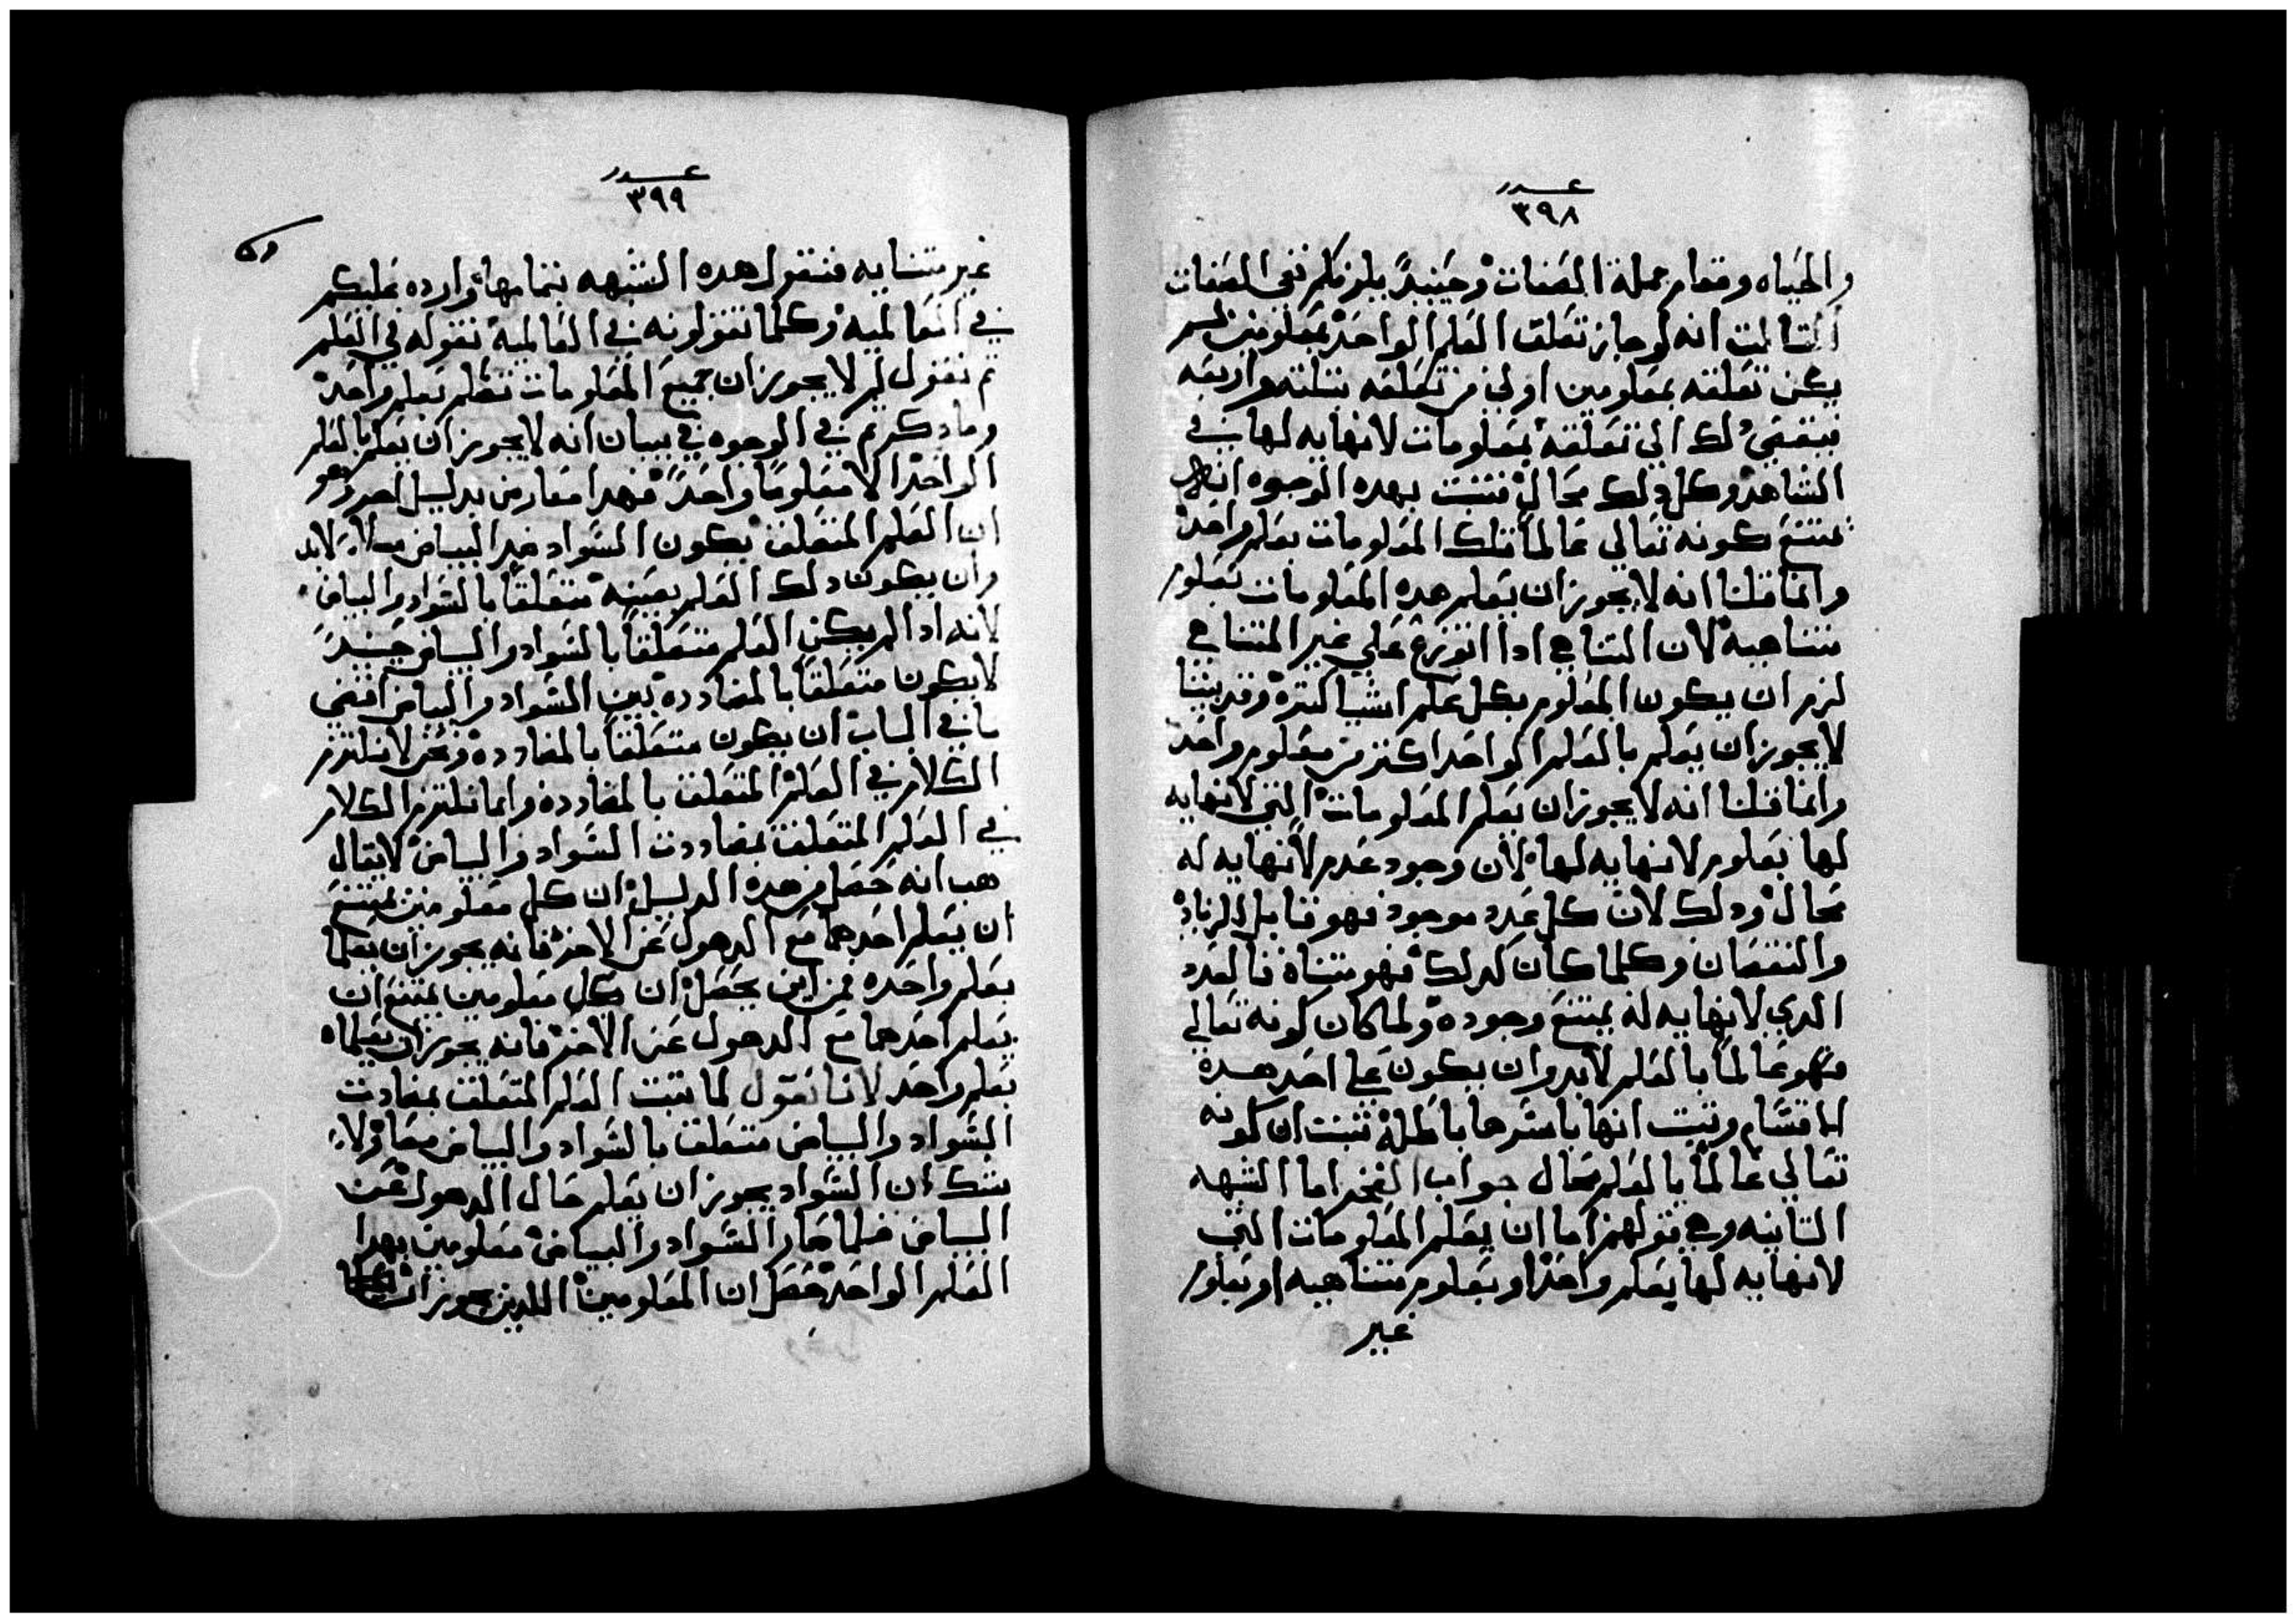 عدد
٣٩٨
والحياه وتمام جملة الصفات وحينيدٍ يلزمكم نفي الصفات
التالت انه لو جاز تعلق العلم الواحد بمعلومين لم
يكن تعلقه بمعلومين اولي من تعلقه بتلته واربعه
فيفضي دلك الي تعلقه بمعلومات لانهايه لها في
الشاهد وكل دلك محال فتبت بهده الوجوه انه
يمتنع كونه تعالي عالماً بتلك المعلومات بعلم واحد
وانما قلنا انه لا يجوز ان يعلم هده المعلومات بعلوم
متناهيه لان المتناهي ادا اتوزع علي غير المتناهي
لزم ان يكون المعلوم بكل علم اشيا كتره وقد بينا
لا يجوز ان يعلم بالعلم الواحد اكتر من معلوم واحد
وانما قلنا انه لا يجوز ان يعلم المعلومات التي لانهايه
لها بعلوم لانهايه لها لان وجود عدم لانهايه له
محال ودلك لان كل عدد موجود فهو قابل الزياد
والنقصان وكلما كان كدلك فهو متناه فالعدد
الدي لانهايه له يمتنع وجوده ولما كان كونه تعالي
فهو عالماً بالعلم لابد وان يكون علي احد هده
الاقسام وتبت انها باسرها باطله تبت ان كونه
تعالي عالماً بالعلم محال جواب الفخر اما الشبهه
التانيه وهي قولهم اما ان يعلم المعلومات التي
لانهايه لها بعلم واحد او بعلوم متناهيه او بعلوم
غير
عدد
٣٩٩
غير متناهيه فنقول هده الشبهه بتمامها وارده عليكم
في العالميه وكلما تقولونه في العالميه نقوله في العلم
تم نقول لم لا يجوز ان جميع المعلومات تعلم بعلم واحد
وما دكرتم في الوجوه في بيان انه لا يجوز ان يعلم بالعلم
الواحد الا معلوماً واحداً فهدا معارض بدليل اخر وهو
ان العلم المتعلق بكون السواد ضد البياض لابد
وان يكون دلك العلم بعينه متعلقاً بالسواد والبياض
لانه ادا لم يكن العلم متعلقاً بالسواد والبياض حينيدٍ
لا يكون متعلقاً بالمضادده بين السواد والبياض اقصي
ما في الباب ان يكون متعلقاً بالمضادده ونحن لا نلتزم
الكلام في العلم المتعلق بالمضادده وانما نلتزم الكلام
في العلم المتعلق بمضاددت السواد والبياض لا يقال
هب انه حصل من هده الدليل ان كل معلومين يمتنع
ان يعلم احدهما مع الدهول عن الاخر فانه يجوز ان يعلما
بعلم واحده فمن اين يحصل ان كل معلومين يمتنع ان
يعلم احدهما مع الدهول عن الاخر فانه يجوز ان يعلماه
بعلم واحد لانا نقول لما تبت العلم المتعلق بمضادت
السواد والبياض متعلق بالسواد والبياض معاً ولا
شك ان السواد يجوز ان يعلم حال الدهول عن
البياض فلما صار السواد والبياض معلومين بهدا
العلم الواحد حصل ان المعلومين اللدين يجوز ان